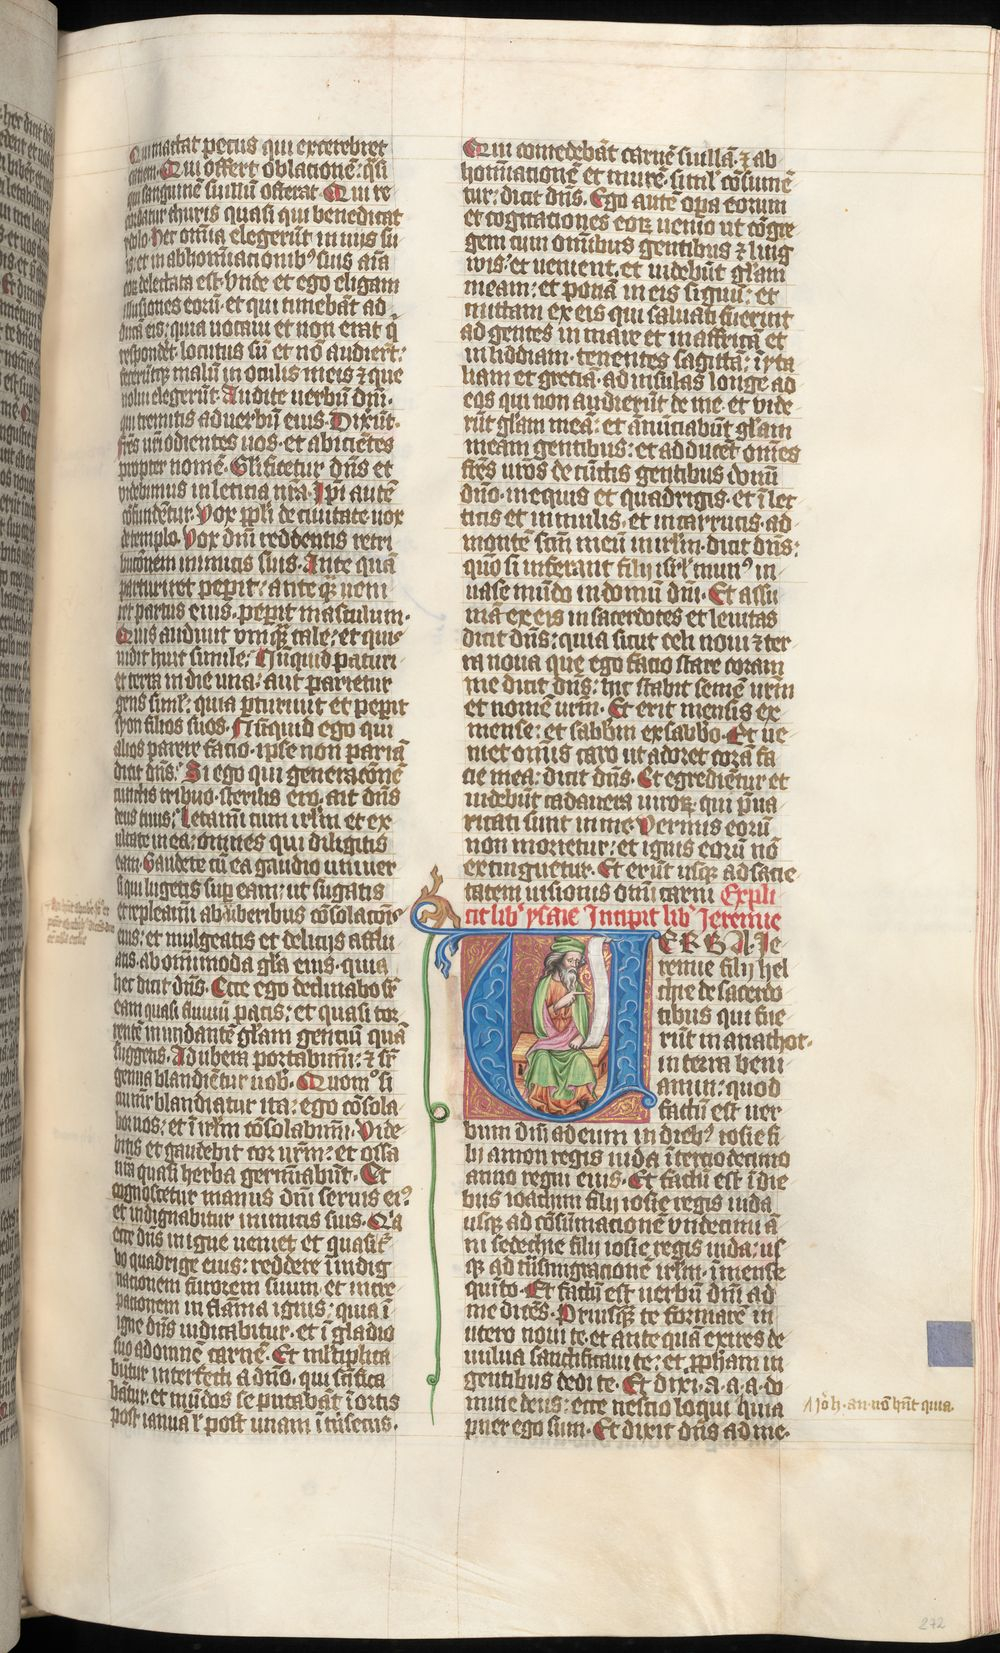 Qui mactat pecus qui excerebret
canem. Qui offert oblationē: q̄si
qui sanguinē suillū offerat. Qui re
cordatur thuris quasi qui benedicat
ydolo. hec om̄ia elegerūt in vijs su
is: et in abhomīacionib⁹ suis aīa
eoꝝ delectata est. Vnde et ego eligam
illusiones eorū: et qui timebāt ad
ducā eis: quia vocaui et non erat q̇
responderet. locutus sū et nō audierūt:
feceruntꝗ malū in oculis meis ⁊ que
nolui elegerūt. Audite verbū dn̄i.
qui tremitis ad verbū eius. Dixerūt.
fr̄es vr̄i odientes vos. et abiciētes
propter nomē. Glificetur dn̄s et
videbimus in leticia vr̄a. Ip̄i autē
cōfundētur. Vox pp̄li de ciuitate. vox
de templo. Vox dn̄i reddentis retri
bucōnem inimicis suis. Ante quā
parturiret peperit: anteqꝫ veni
ret partus eius. peperit masculum.
Quis audiuit vmqꝫ tale: et quis
vidit huic simile: Nūquid parturi
et terra in die una: aut parietur
gens siml̄: quia parturiuit et peperit
syon filios suos. Nūquid ego qui
alios parere facio. ipse non pariā
dicit dn̄s: Si ego qui generacōnē
cunctis tribuo. sterilis ero. ait dn̄s
deus tuus: Letamī cum irl̄m et ex
ultate in ea: omnes qui diligitis
eam. Gaudete cū ea gaudio vniuer
si qui lugetis super eam: ut sugatis
et repleami ab vberibus cōsolacōnis
eius: et mulgeatis et delicijs afflu
atis. ab omnimoda gl̄a eius. quia
hec dicit dn̄s. Ecce ego declinabo sr̄
eam quasi fluuiū pacis: et quasi tor
rentē inundantē gl̄am genciū quā
suggetis. Ad vbera portabimī: ⁊ sr̄
genua blandiētur vob̄. Quom̊ si
cui mr̄ blandiatur ita: ego cōsola
bor vos: et ī irl̄m cōsolabimī. Vide
bitis et gaudebit cor vr̄m: et ossa
vr̄a quasi herba germīabūt. Et
cognoscetur manus dn̄i seruis ei⁹
et indignabitur inimicis suis. Q̇a
ecce dn̄s in igne veniet et quasi t̄
bo quadrige eius: reddere ī indig
nacionem furorem suum. et incre
pacionem in flāma ignis: quia ī
igne dn̄s iudicabitur. et ī gladio
suo ad omnē carnē. Et ml̄tiplica
būtur interfecti a dn̄o. qui scīfica
bātur. et mūdos se putabāt ī ortis
post ianuā l̄ post vnam ītrīsecus.
Qui comedebāt carnē suillā. ⁊ ab
homīacionē et murē. siml̄ cōsumē
tur: dicit dn̄s. Ego autē oꝑa eorum
et cogitaciones eoꝝ venio ut cōgre
gem cum omībus gentibus ⁊ ling
wis: et venient. et videbūt gl̄am
meam: et ponā in eis signū: et
mittam ex eis qui saluati fuerint
ad gentes in mare et in affricā et
in liddiam. tenentes sagittā: ī yta
liam et greciā. ad insulas longe ad
eos qui non audierūt de me. et vide
rūt gl̄am meā: et anūciabūt gl̄am
meam gentibus: et adducēt omēs
fr̄es vr̄os de cūctis gentibus donū
dn̄o. in equis et quadrigis. et ī lec
ticis et in mulis. et in carrucis. ad
montē scm̄ meū in irl̄m. dicit dn̄s:
quō si inferant filij isrl̄ mun⁹ in
vase mūdo in domū dn̄i. Et assu
mā ex eis in sacerdotes et leuitas
dicit dn̄s: quia sicut celi noui ⁊ ter
ra noua que ego facio stare coram
me dicit dn̄s: sic stabit semē vr̄m
et nomē vr̄m. Et erit mensis ex
mense: et sabbm̄ ex sabbo. Et ve
niet omīs caro ut adoret corā fa
cie mea: dicit dn̄s. Et egrediētur et
videbūt cadauera viroꝝ. qui p̄ua
ricati sunt in me. Vermis eorū
non morietur: et ignis eorū nō
extinguetur. Et erūt usqꝫ ad sacie
tatem visionis omī carni Expli
cit lib̄ ysaie Incipit lib̄ Jeremie
VERBA Je
remie filij hel
chie de sacerdo
tibus qui fue
rūt in anathot.
in terra beni
amin: quod
factū est ver
bum dn̄i ad eum in dieb⁹ iosie fi
lij amon regis iuda ī tercio decimo
anno regni eius. Et factū est ī die
bus ioachim filij iosie regis iuda
usqꝫ ad cōsūmacionē vndecimi ā
ni sedechie filij iosie regis iuda: us
qꝫ ad tn̄smigracionē irl̄m. ī mense
quīto. Et factū est verbū dn̄i ad
me dicēs. Priusqꝫ te formarē in
vtero noui te. et ante quā exires de
vulua sanctificaui te: et ꝓph̄am in
gentibus dedi te. Et dixi. a. a. a. do
mine deus: ecce nescio loqui quia
puer ego sum. Et dixit dn̄s ad me.
Joh̄. an. nō hn̄t quia.
272